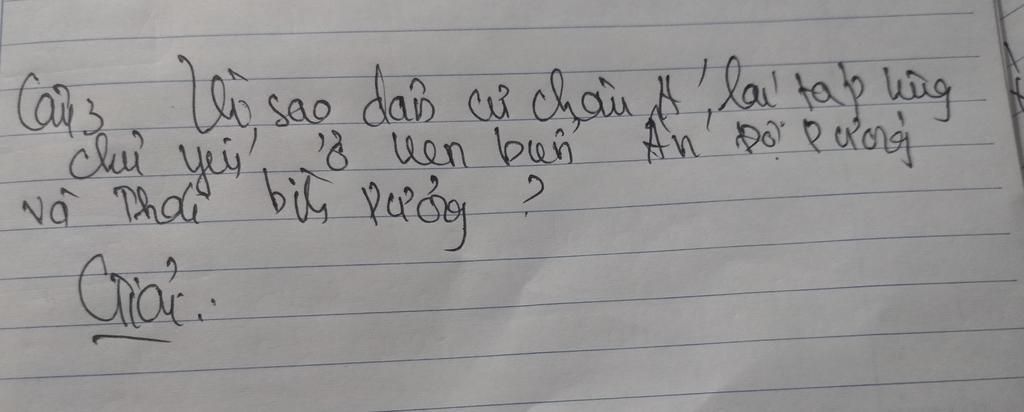 Câu 3 Vì sao dân cư châu Á lại tập trung
chủ yếu ở ven biển Ấn Độ Dương
và Thái Bình Dương ?
Giải :